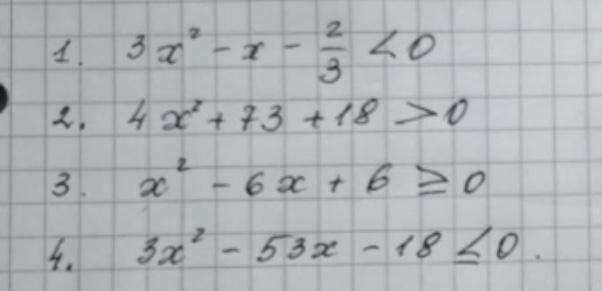 1. 3x² - x - 2/3 < 0
2. 4x² + 73 + 18 > 0
3. x² - 6x + 6 ≥ 0
4. 3x² - 53x - 18 ≤ 0.